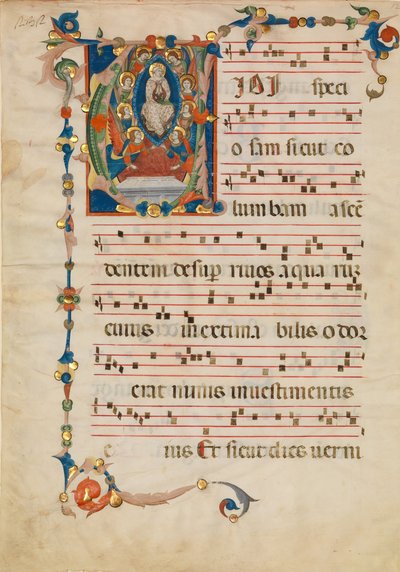 IDI speci
o sam sicut co
lumbam ascē
dentem desup rivos aqua rum
cuius inextima bilis odor
erat nimis investimentis
e ius Et sicut dies verni